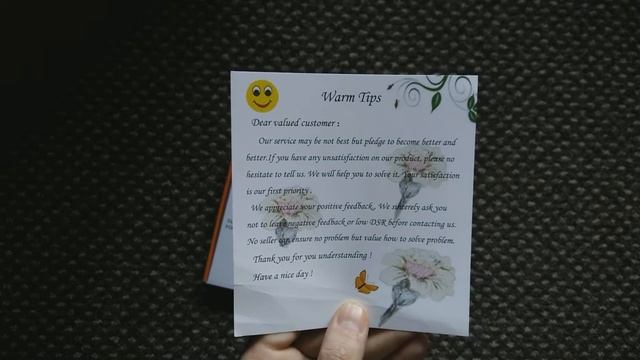 Warm Tips
Dear valued customer :
Our service may be not best but pledge to become better and
better.If you have any unsatisfaction on our product, please no
hesitate to tell us. We will help you to solve it. Your satisfaction
is our first priority.
We appreciate your positive feedback. We sincerely ask you
not to leave negative feedback or low DSR before contacting us.
No seller can ensure no problem but value how to solve problem.
Thank you for you understanding !
Have a nice day !